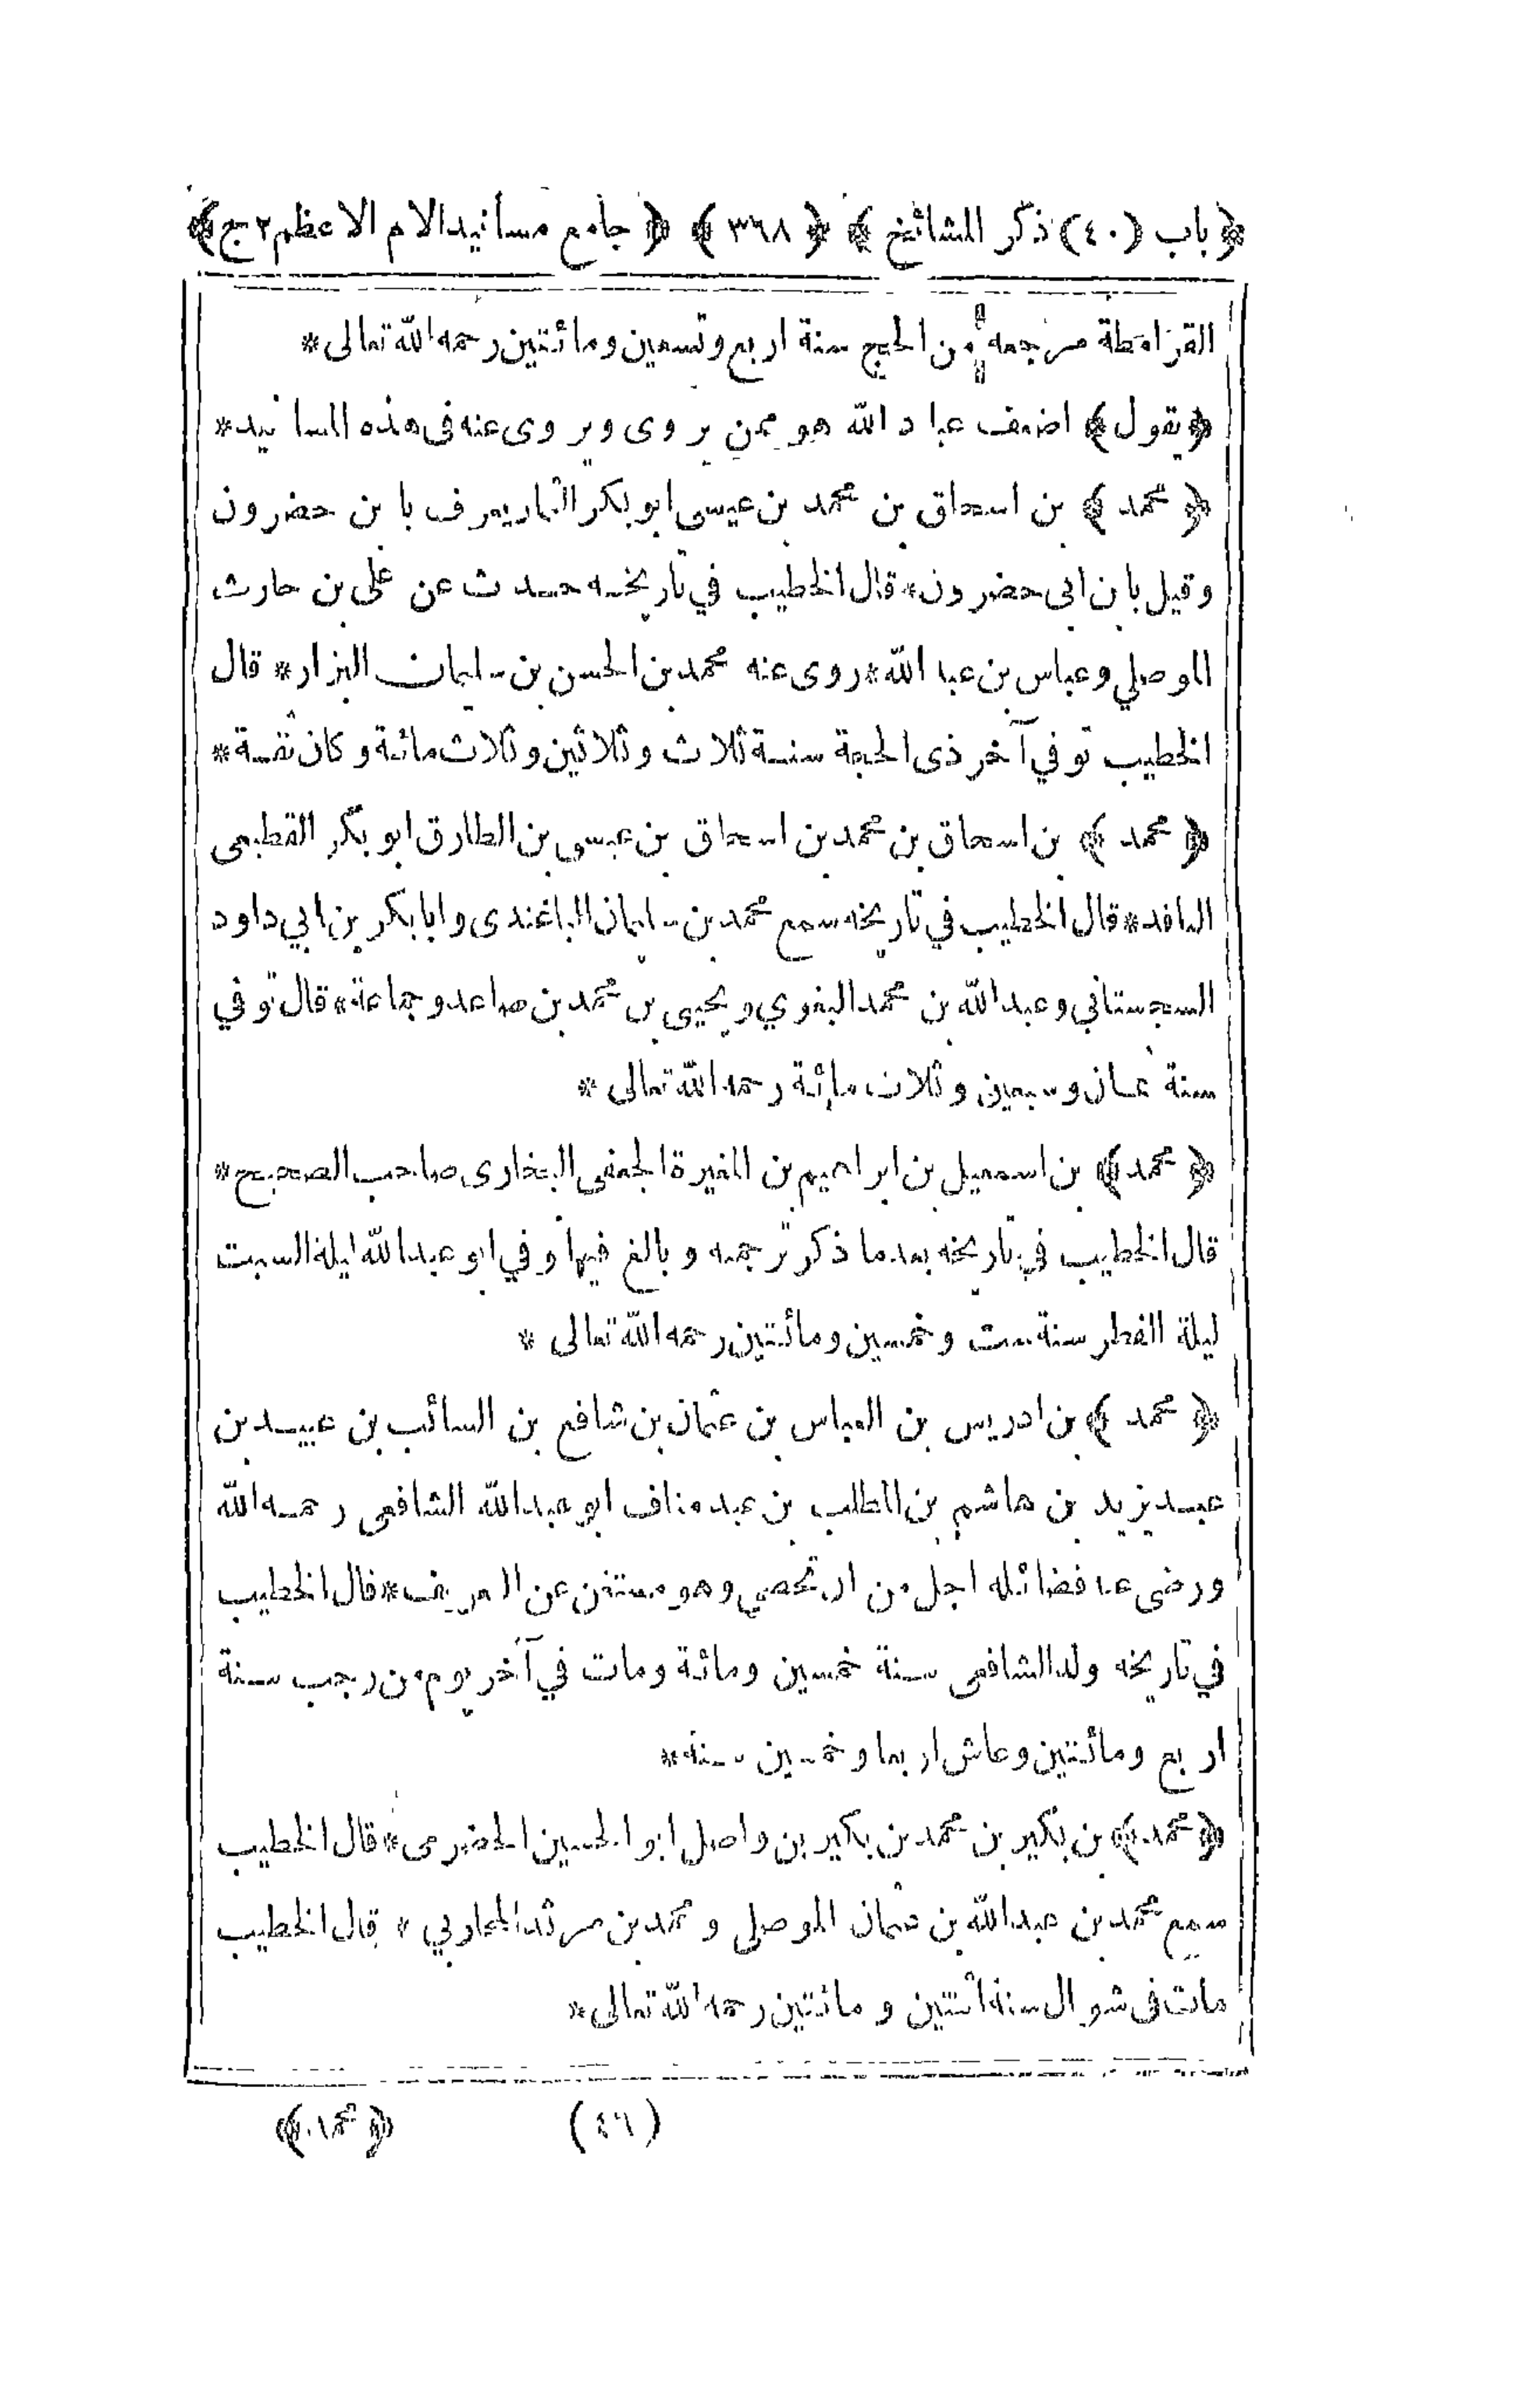 ﴿ باب (٤٠) ذكر المشائخ ﴾ ﴿ ٣٦٨ ﴾ ﴿ جامع مسانيد الام الاعظم ج٢ ﴾
القرامطة مرجعه من الحج سنة اربع وتسعين ومائتين رحمه الله تعالى *
﴿ يقول ﴾ اضعف عباد الله هو ممن يروى ويروى عنه فى هذه المسانيد *
﴿ محمد ﴾ بن اسحاق بن محمد بن عيسى ابو بكر التمار يعرف بابن حضرون
وقيل بابن ابى حضرون * قال الخطيب في تاريخه حدث عن على بن حارث
الموصلي وعباس بن عبد الله * روى عنه محمد بن الحسن بن سليمان البزار * قال
الخطيب توفي آخر ذى الحجة سنة ثلاث وثلاثين وثلاث مائة وكان ثقة *
﴿ محمد ﴾ بن اسحاق بن محمد بن اسحاق بن عيسى بن الطارق ابو بكر القطيعى
الناقد * قال الخطيب في تاريخه سمع محمد بن سليمان الباغندى وابا بكر بن ابي داود
السجستاني وعبد الله بن محمد البغوي ويحيى بن محمد بن صاعد وجماعة * قال توفي
سنة ثمان وسبعين وثلاث مائة رحمه الله تعالى *
﴿ محمد ﴾ بن اسمعيل بن ابراهيم بن المغيرة الجعفى البخارى صاحب الصحيح *
قال الخطيب في تاريخه بعد ما ذكر ترجمته وبالغ فيها توفي ابو عبد الله ليلة السبت
ليلة الفطر سنة ست وخمسين ومائتين رحمه الله تعالى *
﴿ محمد ﴾ بن ادريس بن العباس بن عثمان بن شافع بن السائب بن عبيد بن
عبد يزيد بن هاشم بن المطلب بن عبد مناف ابو عبد الله الشافعى رحمه الله
ورضى عنه فضائله اجل من ان تحصى وهو مستغن عن التعريف * قال الخطيب
في تاريخه ولد الشافعى سنة خمسين ومائة ومات في آخر يوم من رجب سنة
اربع ومائتين وعاش اربعا وخمسين سنة *
﴿ محمد ﴾ بن بكير بن محمد بن بكير بن واصل ابو الحسين الحضرمى * قال الخطيب
سمع محمد بن عبد الله بن عثمان الموصلى ومحمد بن مرثد المحاربي * قال الخطيب
مات فى شوال سنة اثنتين ومائتين رحمه الله تعالى *
(٤٦) ﴿ محمد ﴾